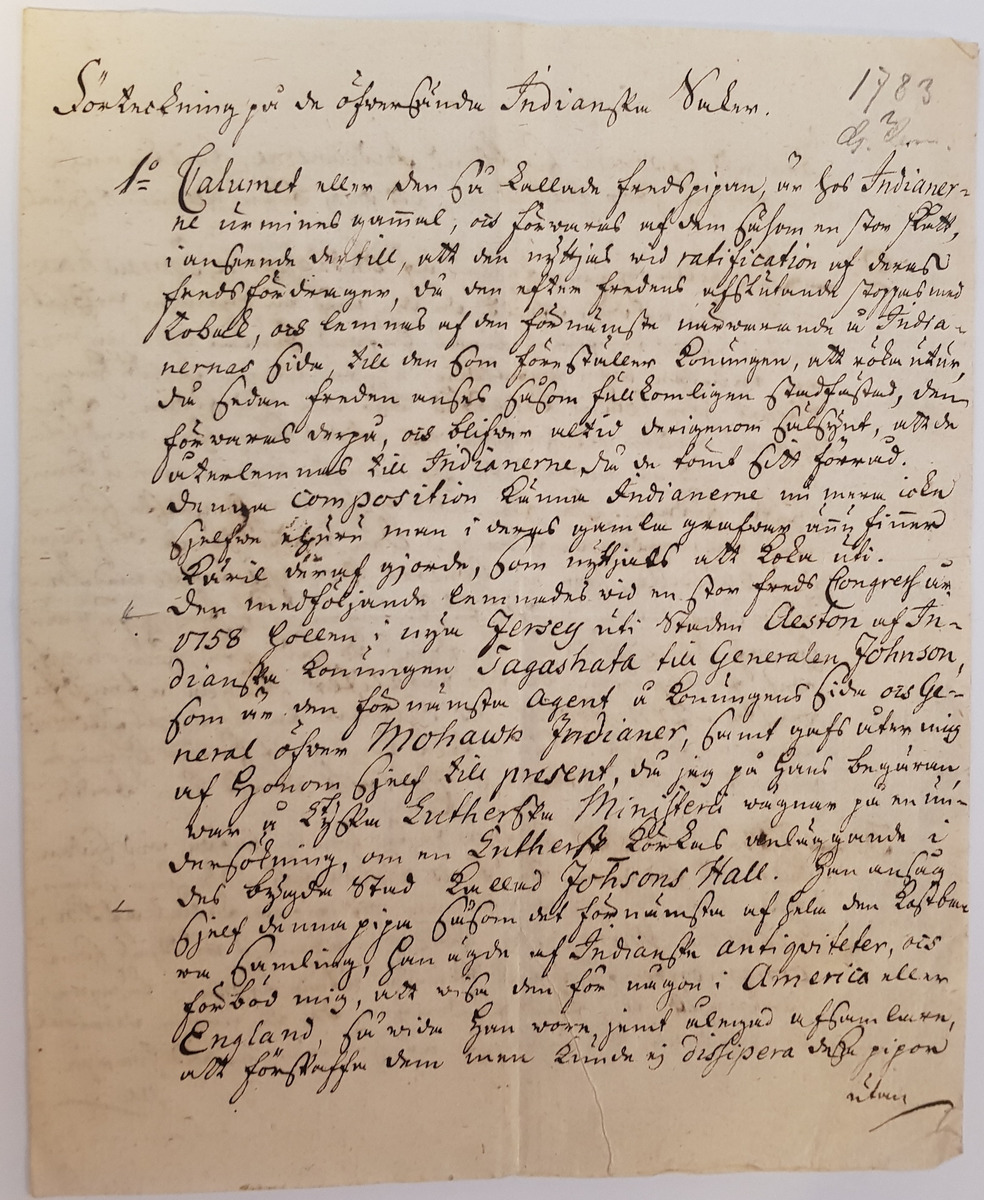 1783
Förteckning på de öfversände Indianska Saker.
1º Calumet eller den så kallade fredspipan, är hos Indianer-
ne urminnes gam̄al, ock förvaras af dem såsom en stor skatt,
i anseende dertill, att den nyttjas vid ratification af deras
fredsfördrager, då den efter fredens afslutande stoppas med
Toback, ock lemnas af den förnämste närvarande å India-
nernas sida, till den som föreställer Konungen, att röka utur,
då sedan freden anses såsom fullkomligen stadfästad, den
förvaras derpå, ock blifver altid derigenom sälsynt, att de
återlemnas till Indianerne, då de tömt sitt förråd.
denna composition känna Indianerne nu mera icke
sjelfve ehuru man i deras gamla grafvar än̄u finner
Käril deraf gjorde, som nyttjats att koka uti.
den medföljande lemnades vid en stor freds Congress år
1758 hollen i nya Jersey uti Staden Aeston af In-
dianska Konungen Tagashata till Generalen Johnson,
som är den förnämsta Agent å Konungens sida ock Ge-
neral öfver Mohawk Indianer, samt gafs åter mig
af Honom sjelf till present, då jag på Hans begäran
var å Tyska Lutherska Ministerii vägnar på en un-
dersökning, om en Luthersk Körkas anläggande i
des bygda Stad kallad Johsons Hall. Han ansåg
sjelf denna pipa såsom det förnämsta af hela den kostba-
ra Samling, han ägde af Indianska antiqviteter, ock
förböd mig, att visa den för någon i America eller
England, så vida Han vore jemt ålegad af samlare,
att förskaffa dem men kunde ej dissipera desse pipor
utan